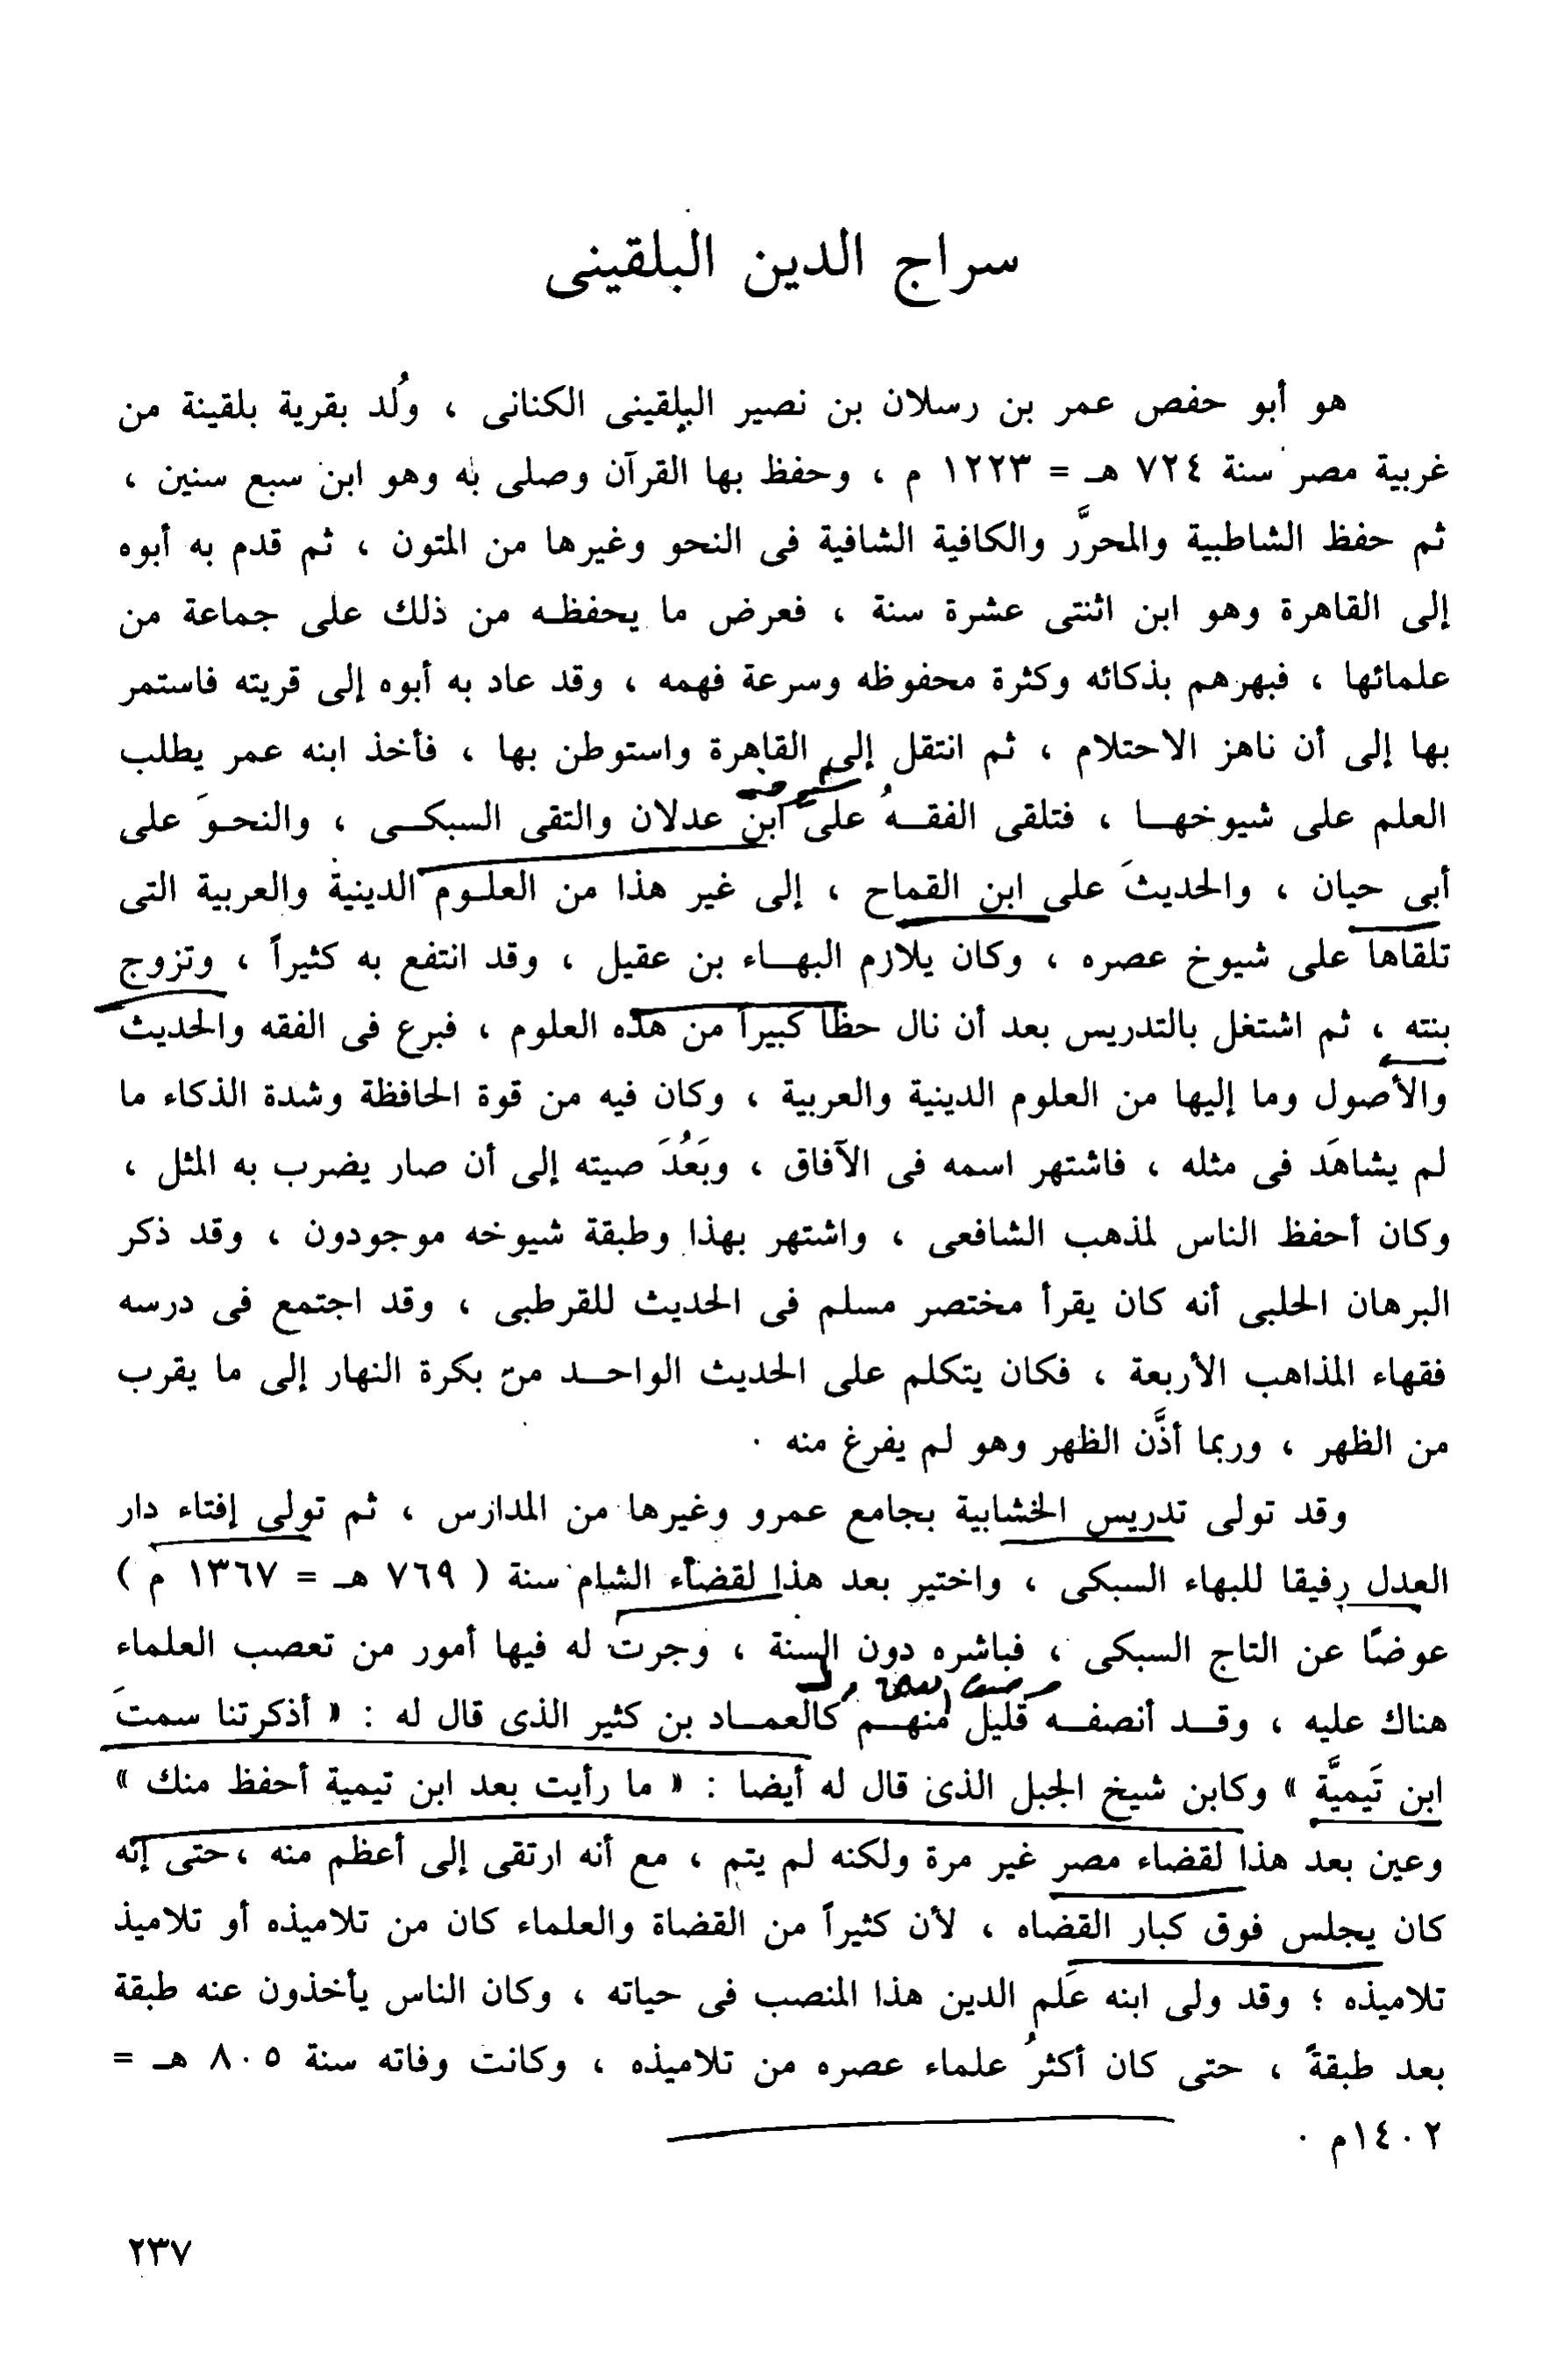 سراج الدين البلقينى
هو أبو حفص عمر بن رسلان بن نصير البلقينى الكنانى ، وُلد بقرية بلقينة من
غربية مصر سنة ٧٢٤ هـ = ١٢٢٣ م ، وحفظ بها القرآن وصلى به وهو ابن سبع سنين ،
ثم حفظ الشاطبية والمحرَّر والكافية الشافية فى النحو وغيرها من المتون ، ثم قدم به أبوه
إلى القاهرة وهو ابن اثنتى عشرة سنة ، فعرض ما يحفظـه من ذلك على جماعة من
علمائها ، فبهرهم بذكائه وكثرة محفوظه وسرعة فهمه ، وقد عاد به أبوه إلى قريته فاستمر
بها إلى أن ناهز الاحتلام ، ثم انتقل إلى القاهرة واستوطن بها ، فأخذ ابنه عمر يطلب
شيوخه
العلم على شيوخهـا ، فتلقى الفقـهُ على ابن عدلان والتقى السبكـى ، والنحـوَ على
أبى حيان ، والحديثَ على ابن القماح ، إلى غير هذا من العلـوم الدينية والعربية التى
تلقاها على شيوخ عصره ، وكان يلازم البهـاء بن عقيل ، وقد انتفع به كثيراً ، وتزوج
بنته ، ثم اشتغل بالتدريس بعد أن نال حظا كبيراً من هذه العلوم ، فبرع فى الفقه والحديث
والأصول وما إليها من العلوم الدينية والعربية ، وكان فيه من قوة الحافظة وشدة الذكاء ما
لم يشاهَد فى مثله ، فاشتهر اسمه فى الآفاق ، وبَعُدَ صيته إلى أن صار يضرب به المثل ،
وكان أحفظ الناس لمذهب الشافعى ، واشتهر بهذا وطبقة شيوخه موجودون ، وقد ذكر
البرهان الحلبى أنه كان يقرأ مختصر مسلم فى الحديث للقرطبى ، وقد اجتمع فى درسه
فقهاء المذاهب الأربعة ، فكان يتكلم على الحديث الواحـد من بكرة النهار إلى ما يقرب
من الظهر ، وربما أذَّن الظهر وهو لم يفرغ منه .
وقد تولى تدريس الخشابية بجامع عمرو وغيرها من المدارس ، ثم تولى إفتاء دار
العدل رفيقا للبهاء السبكى ، واختير بعد هذا لقضاء الشام سنة ( ٧٦٩ هـ = ١٣٦٧ م )
عوضًا عن التاج السبكى ، فباشره دون السنة ، وجرت له فيها أمور من تعصب العلماء
هناك عليه ، وقـد أنصفـه قليل منهـم كالعمـاد بن كثير الذى قال له : « أذكرتنا سمتَ
ابن تَيميَّة » وكابن شيخ الجبل الذى قال له أيضا : « ما رأيت بعد ابن تيمية أحفظ منك »
وعين بعد هذا لقضاء مصر غير مرة ولكنه لم يتم ، مع أنه ارتقى إلى أعظم منه ، حتى إنه
كان يجلس فوق كبار القضاه ، لأن كثيراً من القضاة والعلماء كان من تلاميذه أو تلاميذ
تلاميذه ؛ وقد ولى ابنه عَلم الدين هذا المنصب فى حياته ، وكان الناس يأخذون عنه طبقة
بعد طبقةً ، حتى كان أكثرُ علماء عصره من تلاميذه ، وكانت وفاته سنة ٨٠٥ هـ =
١٤٠٢م .
٢٣٧